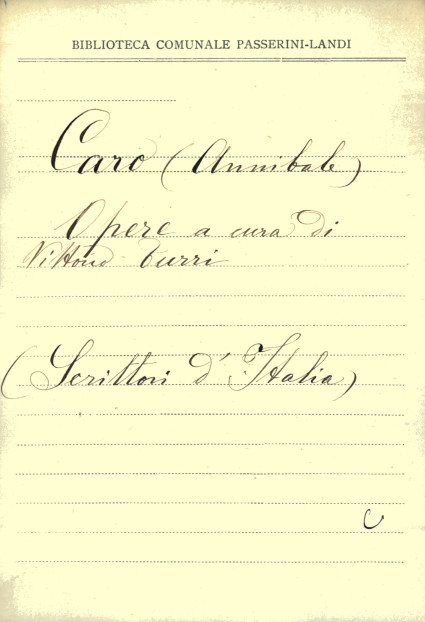 BIBLIOTECA COMUNALE PASSERINI-LANDI
Caro (Annibale)
Opere a cura di
Vittorio Turri
(Scrittori d'Italia)